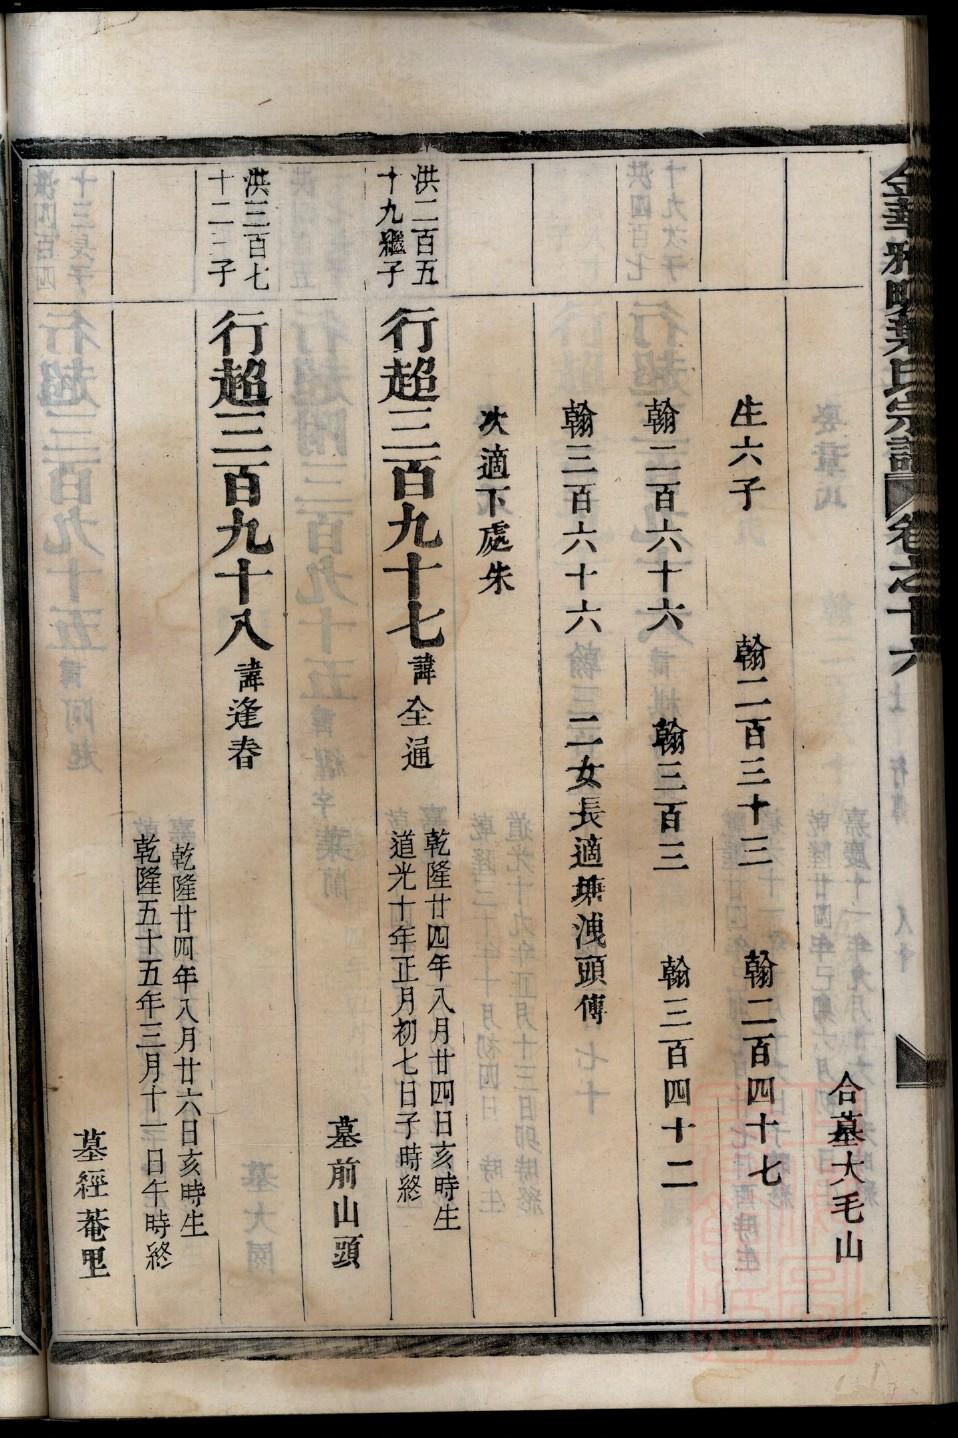 金華雅畈葉氏宗譜 卷之十六
合墓大毛山
生六子 翰二百三十三 翰二百四十七
翰二百六十六 翰三百三 翰三百四十二
翰三百六十六 二女長適塘洩頭傅
次適下處朱
洪二百五
十九繼子
行超三百九十七 諱全通
乾隆廿四年八月廿四日亥時生
道光十年正月初七日子時終
墓前山頭
洪三百七
十二二子
行超三百九十八 諱逢春
乾隆廿四年八月廿六日亥時生
乾隆五十五年三月十一日午時終
墓經菴里